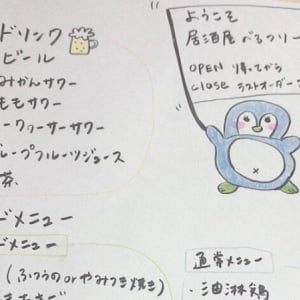 ドリンク
ビール
みかんサワー
ももサワー
ーワーサーサワー
レープフルーツジュース
茶
ようこそ
居酒屋 べるフリー
OPEN 帰ってから
CLOSE ラストオーダー
ドメニュー
ドメニュー
(ふつうのorやみつき焼き)
通常メニュー
・油淋鶏